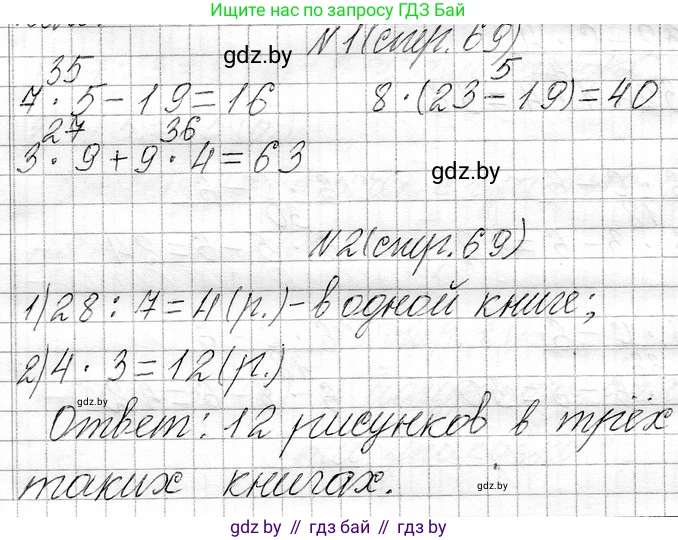 Ищите нас по запросу ГДЗ Бай
gdz.by
N1(стр.69)
35 5
7·5-19=16 8·(23-19)=40
27 36
3·9+9·4=63
gdz.by
N2(стр.69)
1)28:7=4(р.)-в одной книге;
2)4·3=12(р.)
gdz.by
Ответ: 12 рисунков в трёх
таких книгах.
gdz.by
gdz.by // гдз бай // gdz.by